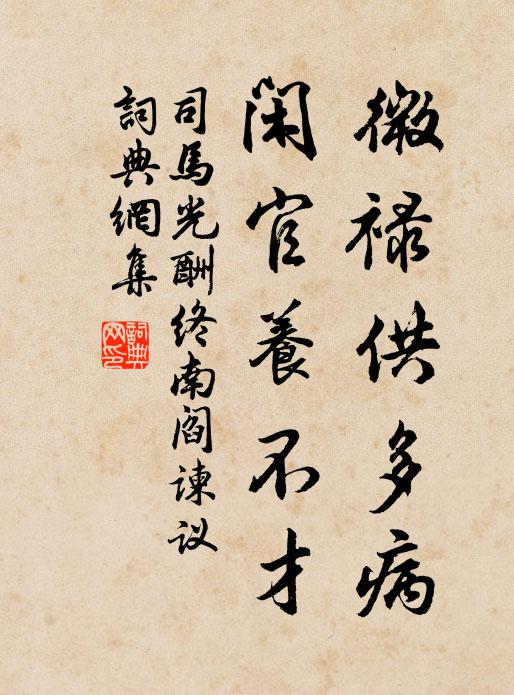 微禄供多病
闲官養不才
司馬光酬终南阎諫议
詞典網集
詞典网印